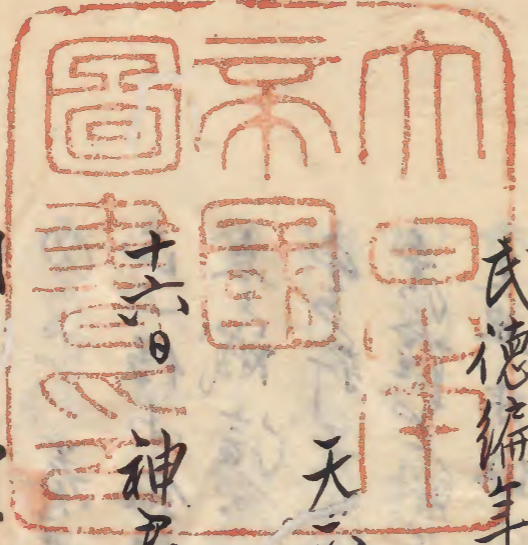 大日本
帝國
圖書印
民德編年
天
十六日 神君